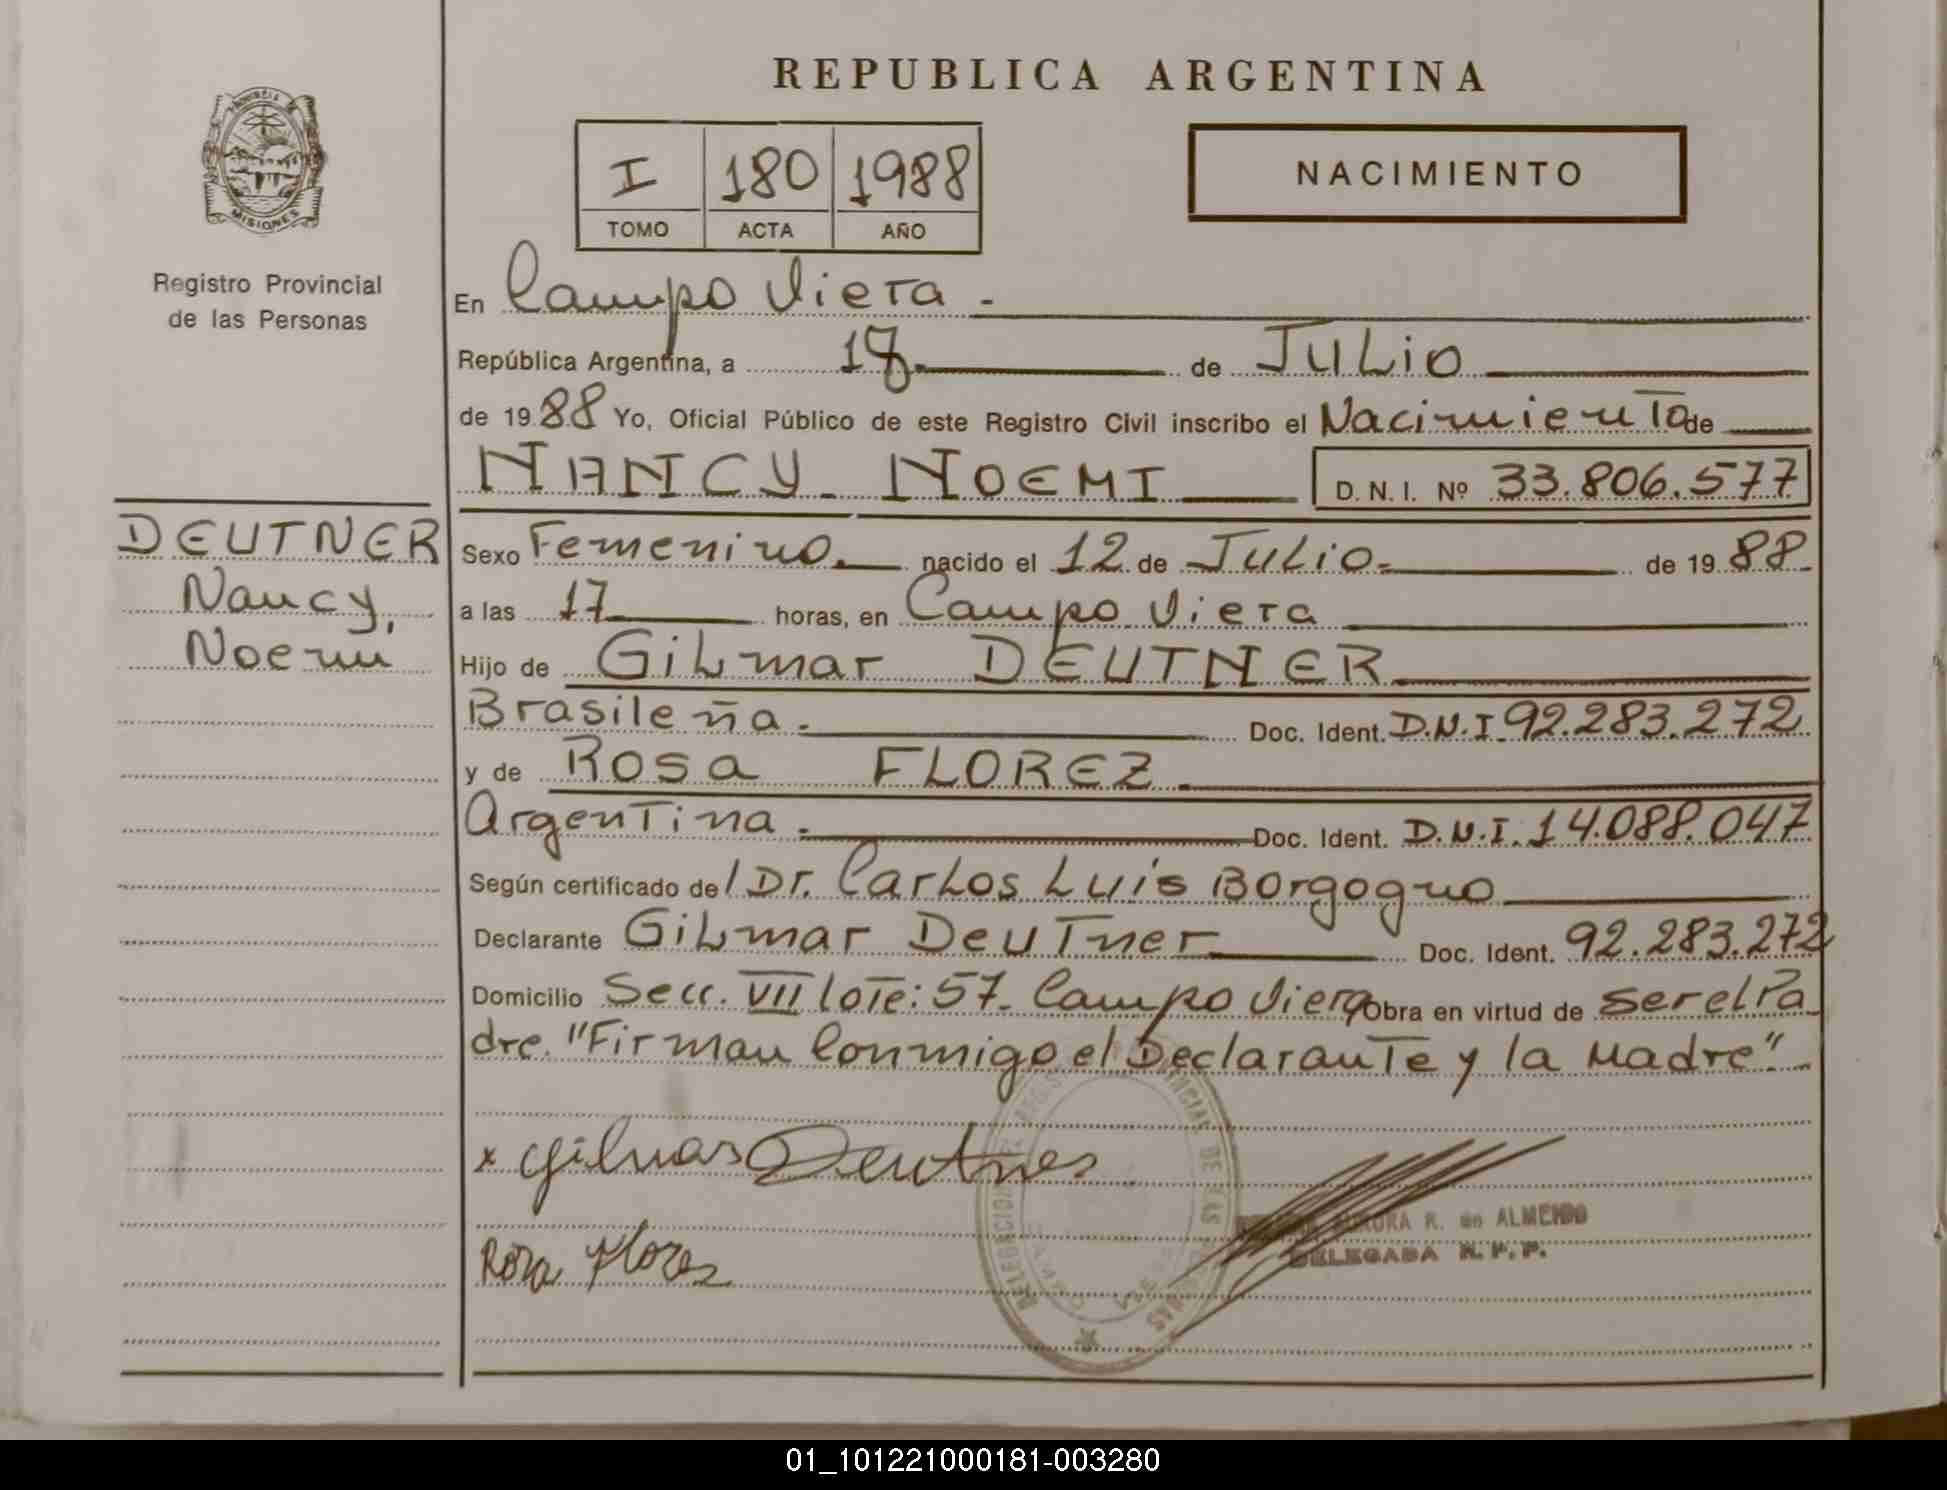 PROVINCIA DE
MISIONES
Registro Provincial
de las Personas
DEUTNER
Nancy,
Noemi
REPUBLICA ARGENTINA
I 180 1988
TOMO ACTA AÑO
NACIMIENTO
En Campo Viera -
República Argentina, a 18 de JULIO
de 19 88 Yo, Oficial Público de este Registro Civil inscribo el Nacimiento de
NANCY NOEMI D. N. I. Nº 33.806.577
Sexo Femenino. nacido el 12 de JULIO.- de 19 88.
a las 17 horas, en Campo Viera
Hijo de GiLmar DEUTNER
Brasileña.- Doc. Ident. D.N.I. 92.283.272
y de ROSA FLOREZ
Argentina.- Doc. Ident. D.N.I. 14.088.047
Según certificado del Dr. Carlos Luis Borgogno
Declarante GiLmar Deutner Doc. Ident. 92.283.272
Domicilio Secc. VII lote: 57- Campo Viera Obra en virtud de ser el Pa
dre. "Firman Conmigo el Declarante y la Madre".-
x Gilmar Deutner
Rosa Flores
AURORA R. de ALMENDO
DELEGADA R. P. P.
01_101221000181-003280